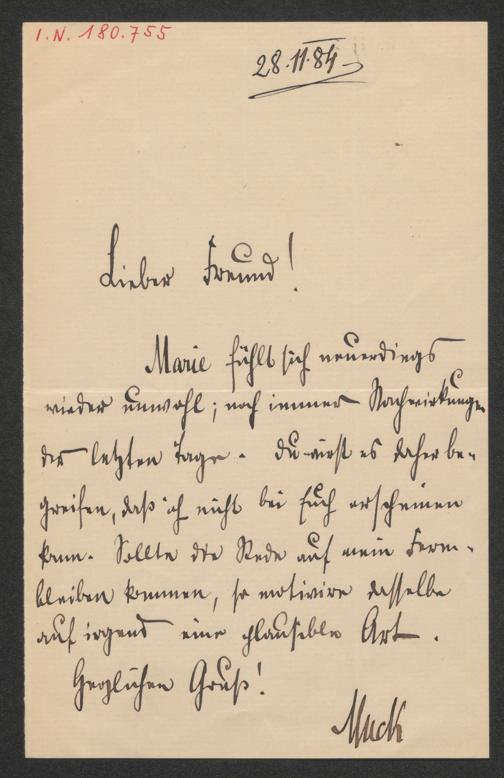 I.N. 180.755
28.11.84
Lieber Freund!
Marie fühlt sich neuerdings
wieder unwohl; noch immer Nachwirkungen
der letzten Tage. Du wirst es daher be-
greifen, daß ich nicht bei Euch erscheinen
kann. Sollte die Rede auf mein Fern-
bleiben kommen, so motivire dasselbe
auf irgend eine plausible Art.
Herzlichen Gruß!
Muck